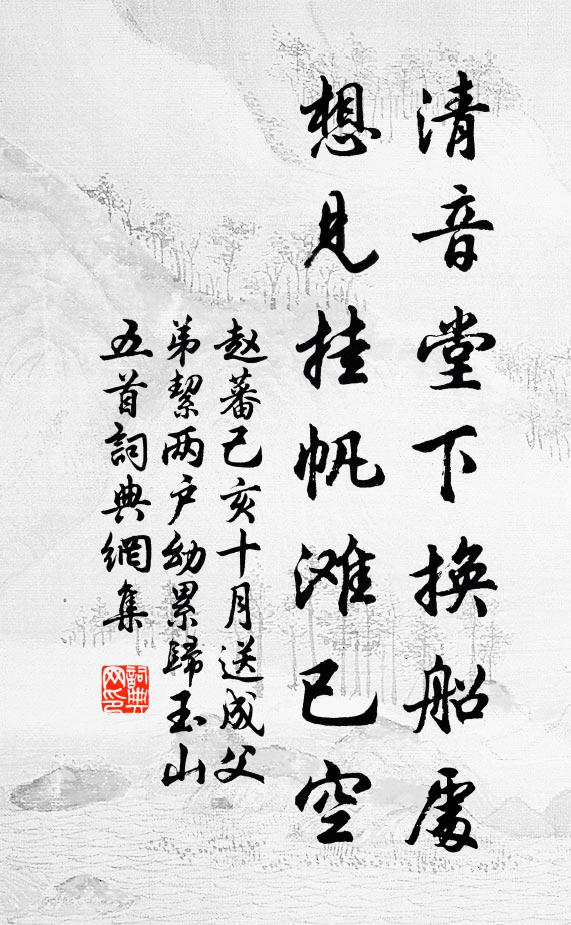 清音堂下換船處
想見挂帆滩已空
赵蕃己亥十月送成父
弟絜两户幼累歸玉山
五首詞典網集
詞典网印